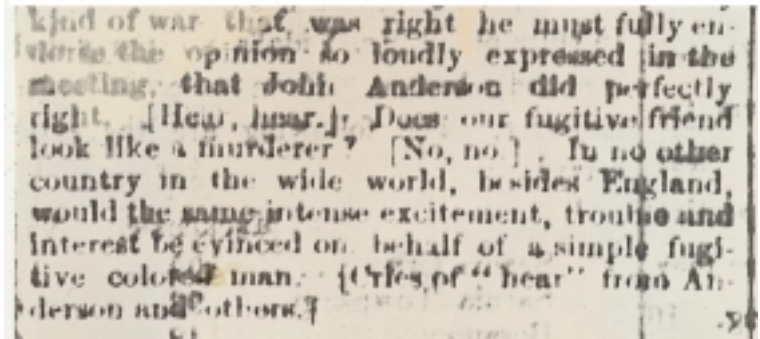 kind of war that was right he must fully en-
dorse the opinion so loudly expressed in the
meeting, that John Anderson did perfectly
right. [Hear, hear.] Does our fugitive friend
look like a murderer? [No, no.] In no other
country in the wide world, besides England,
would the same intense excitement, trouble and
interest be evinced on behalf of a simple fugi-
tive colored man. [Cries of "hear" from An-
derson and others.]